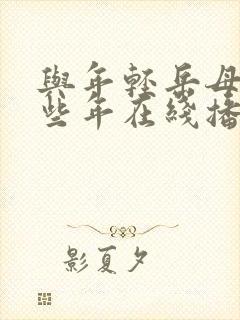 與年輕岳母
些年在綫播
影夏夕